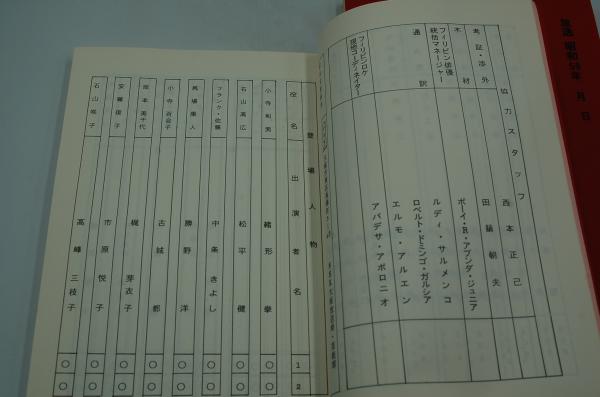 放送 昭和59年 月 日
協力スタッフ
考証・渉外 西本正己
木材 田鍋朝夫
フィリピン俳優
統括マネージャー
ボーイ・R・アブンダ・ジュニア
ルディ・サルメンコ
通訳
ロベルト・ドミンゴ・ガルシア
エルモ・アルエン
フィリピンロケ
現地コーディネイター
アバデサ・アポロニオ
登場人物
役名 出演者名 1 2
小寺和男 緒形拳 ○ ○
石山高広 松平健 ○ ○
フランク・佐藤 中条きよし ○ ○
馬場康人 勝野洋 ○ ○
小寺百合子 古城都 ○ ○
坂本美千代 梶芽衣子 ○ ○
安藤信子 市原悦子 ○ ○
石山咲子 高峰三枝子 ○ ○